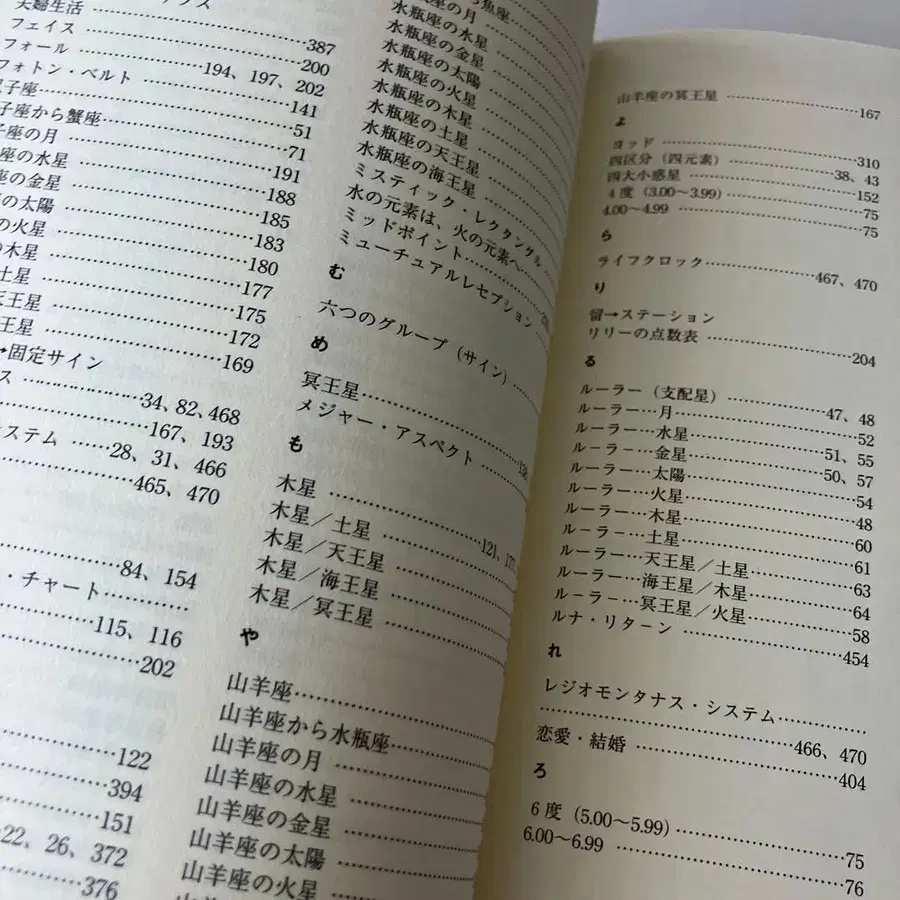 夫婦生活
フェイス……387
フォール……200
フォトン・ベルト……194、197、202
子座……141
子座から蟹座……51
子座の月……71
座の水星……191
座の金星……188
の太陽……185
の火星……183
の木星……180
土星……177
天王星……175
王星……172
169
→固定サイン
ス……34、82、468
167、193
システム……28、31、466
465、470
84、154
・チャート……
115、116
202
122
394
151
22、26、372
376
魚座……
水瓶座の月
水瓶座の水星
水瓶座の金星
水瓶座の太陽
水瓶座の火星
水瓶座の木星
水瓶座の土星
水瓶座の天王星
水瓶座の海王星
ミスティック・レクタングル
水の元素は、火の元素へ
ミッドポイント……
ミューチュアルレセプション
む
六つのグループ（サイン）……
め
冥王星……
メジャー・アスペクト……
も
木星……121、
木星／土星……
木星／天王星……
木星／海王星……
木星／冥王星……
や
山羊座……
山羊座から水瓶座……
山羊座の月……
山羊座の水星……
山羊座の金星……
山羊座の太陽……
山羊座の火星……
山羊座の冥王星……167
よ
ヨッド……310
四区分（四元素）……38、43
四大小惑星……152
4度（3.00〜3.99）……75
4.00〜4.99……75
ら
ライフクロック……467、470
り
留→ステーション
リリーの点数表……204
る
ルーラー（支配星）……47、48
ルーラー…月……52
ルーラー…水星……51、55
ルーラー…金星……50、57
ルーラー…太陽……54
ルーラー…火星……48
ルーラー…木星……60
ルーラー…土星……61
ルーラー…天王星／土星……63
ルーラー…海王星／木星……64
ルーラー…冥王星／火星……58
ルナ・リターン……454
れ
レジオモンタナス・システム……
……466、470
恋愛・結婚……404
ろ
6度（5.00〜5.99）……75
6.00〜6.99……76